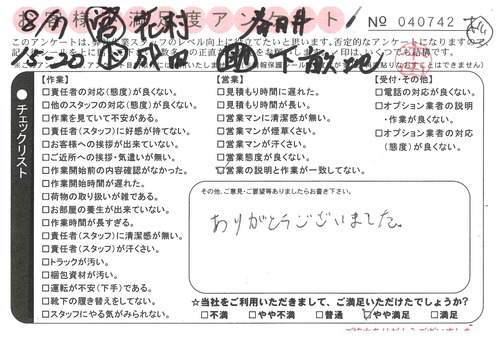 お客様満足度アンケート
8/7 営 花村 春日井
№ 040742
15:20
このアンケートは、
チェックリスト
【作業】
□責任者の対応(態度)が良くない。
□他のスタッフの対応(態度)が良くない。
□作業を見ていて不安がある。
□責任者(スタッフ)に好感が持てない。
□お客様への挨拶が出来ていない。
□ご近所への挨拶・気遣いが無い。
□作業開始前の内容確認がなかった。
□作業開始時間が遅れた。
□荷物の取り扱いが雑である。
□お部屋の養生が出来ていない。
□作業時間が長すぎる。
□責任者(スタッフ)に清潔感が無い。
□責任者(スタッフ)が汗くさい。
□トラックが汚い。
□梱包資材が汚い。
□運転が不安(下手)である。
□靴下の履き替えをしてない。
□スタッフにやる気がみられない。
【営業】
□見積もり時間に遅れた。
□見積もり時間が長い。
□営業マンに清潔感が無い。
□営業マンが煙草くさい。
□営業マンが汗くさい。
□営業態度が良くない。
□営業の説明と作業が一致してない。
【受付・その他】
□電話の対応が良くない。
□オプション業者の説明
・作業が良くない。
□オプション業者の対応
(態度)が良くない。
その他、ご意見・ご要望等ありましたらお書き下さい。
ありがとうございました。
☆当社をご利用いただきまして、ご満足いただけたでしょうか?
□不満 □やや不満 □普通 ☑やや満足 □満足